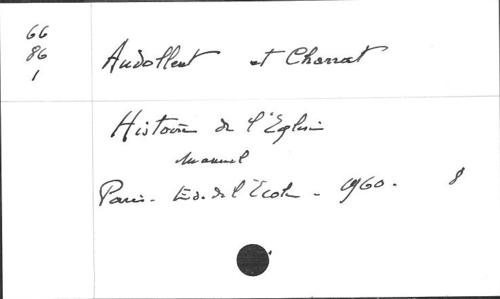 66
86
1
Audollent et Charrat
Histoire de l'Eglise
Manuel
Paris - Ed. de l'Ecole - 1960 - 8